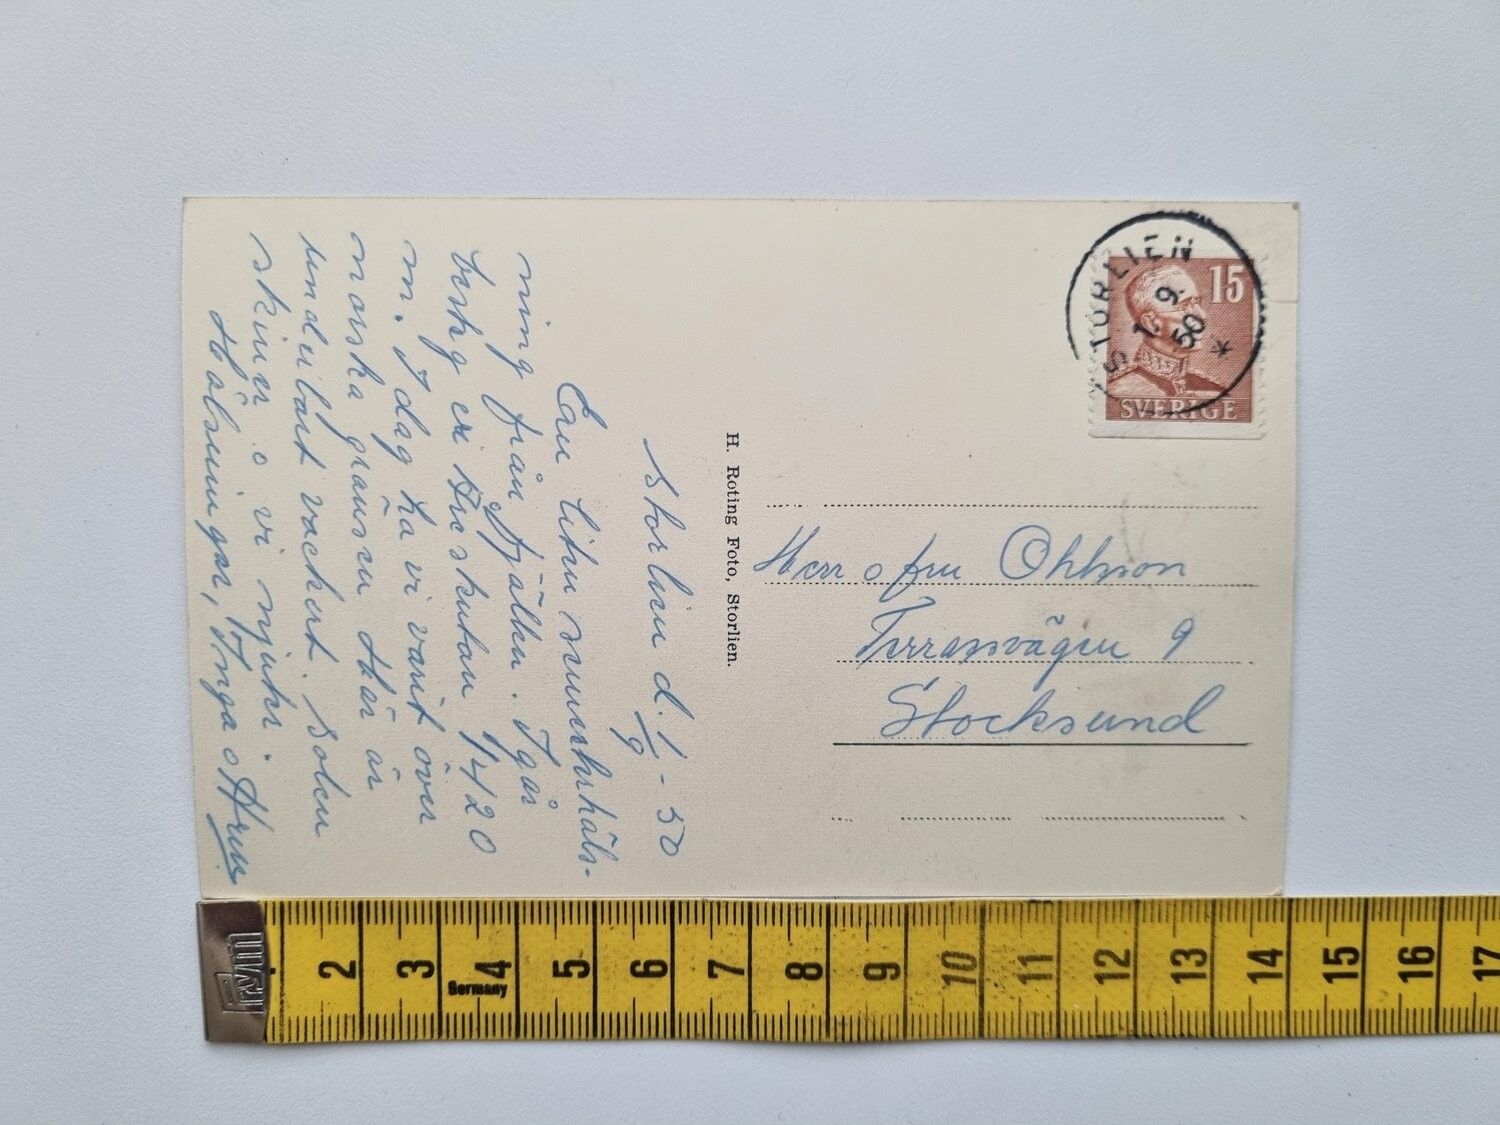 Storlien d. 1/9 - 50
En liten semesterhäls-
ning från fjällen. Igår
besteg vi Åreskutan 1420
m. I dag ha vi varit över
norska gränsen. Här är
underbart vackert. Solen
skiner o vi njuter.
Hälsningar, Inga o
H. Roting Foto, Storlien.
STORLIEN
1. 9.
50
*
15
SVERIGE
Herr o fru Ohlsson
Terrassvägen 9
Stocksund
2 3 4 5 6 7 8 9 10 11 12 13 14 15 16 17
Germany